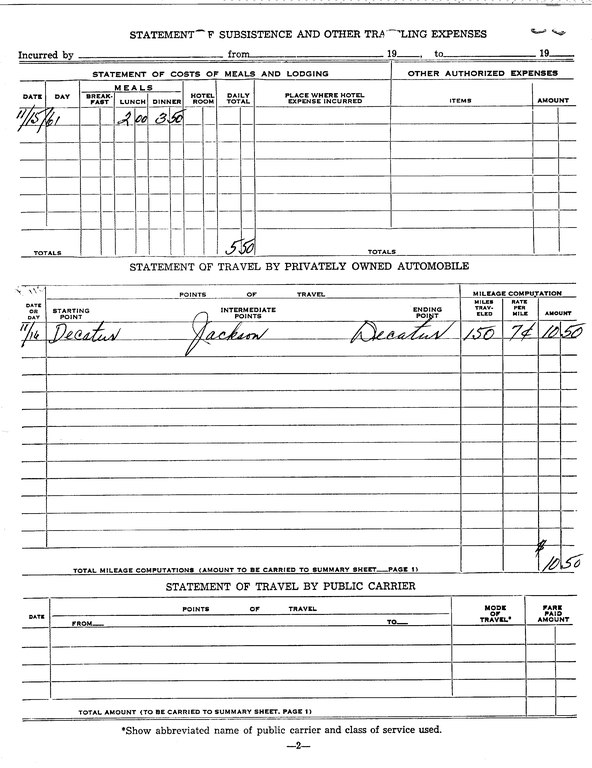 STATEMENT F SUBSISTENCE AND OTHER TRA LING EXPENSES
Incurred by from 19 , to 19
STATEMENT OF COSTS OF MEALS AND LODGING OTHER AUTHORIZED EXPENSES
DATE DAY MEALS BREAK-FAST LUNCH DINNER HOTEL ROOM DAILY TOTAL PLACE WHERE HOTEL EXPENSE INCURRED ITEMS AMOUNT
11/15/61 2 00 3 50
TOTALS 5 50 TOTALS
STATEMENT OF TRAVEL BY PRIVATELY OWNED AUTOMOBILE
POINTS OF TRAVEL MILEAGE COMPUTATION
DATE OR DAY STARTING POINT INTERMEDIATE POINTS ENDING POINT MILES TRAV-ELED RATE PER MILE AMOUNT
11/16 Decatur Jackson Decatur 150 7¢ 10 50
TOTAL MILEAGE COMPUTATIONS (AMOUNT TO BE CARRIED TO SUMMARY SHEET—PAGE 1) $ 10 50
STATEMENT OF TRAVEL BY PUBLIC CARRIER
DATE POINTS OF TRAVEL MODE OF TRAVEL* FARE PAID AMOUNT
FROM— TO—
TOTAL AMOUNT (TO BE CARRIED TO SUMMARY SHEET, PAGE 1)
*Show abbreviated name of public carrier and class of service used.
—2—